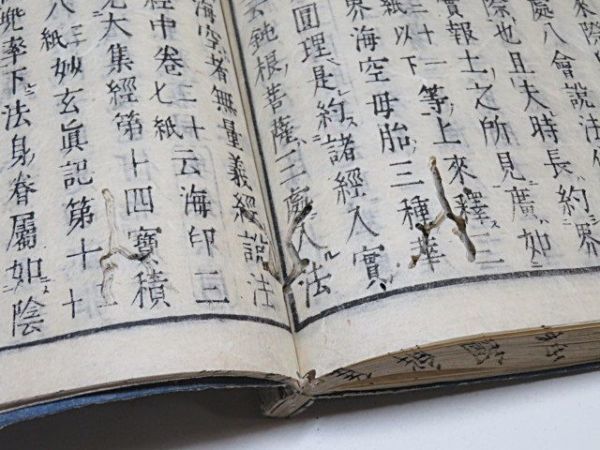 處八會說法
際也且夫時長約界
實報土之所見廣如
三十一
紙以下
等上來釋三
界海空毋胎三種華
圓理是約諸經入實
云鈍根菩薩三處入法
海空者無量義經說法
經中卷七紙二十云海印三
大集經第十四寶積
八紙妙玄眞記第十十
兜率下法身眷屬如陰